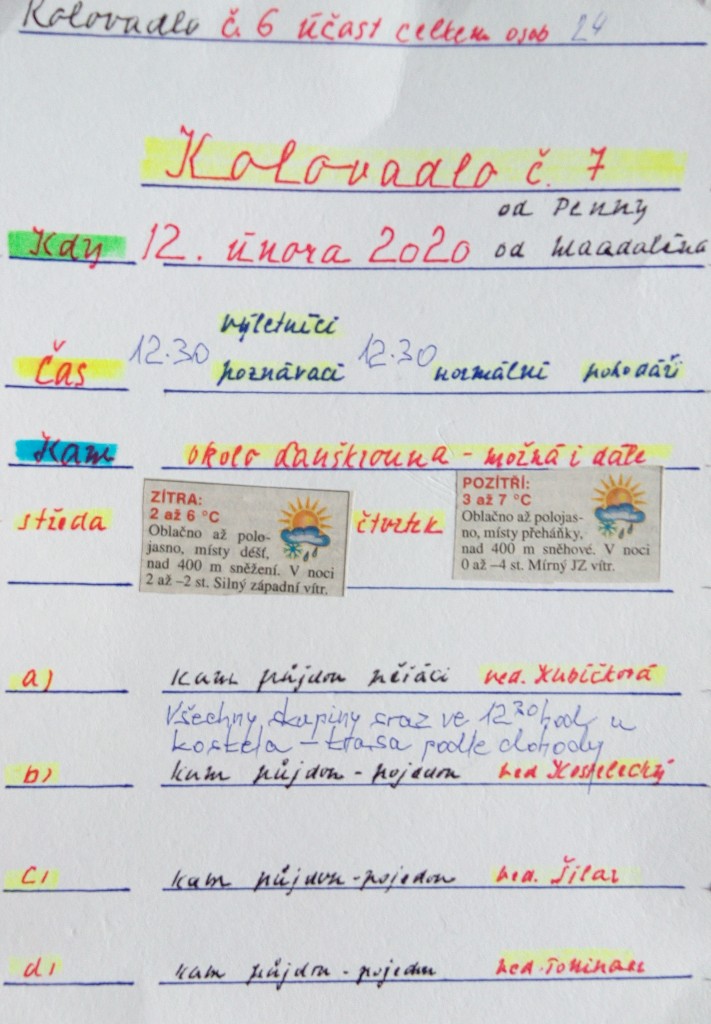 Kolovadlo č. 6 účast celkem osob 24
Kolovadlo č. 7
od Penny
Kdy 12. února 2020 od Maadaléna
výletníci
Čas 12.30 poznávací 12.30 normální pohodáři
Kam okolo Lanškrouna - možná i dále
středa
ZÍTRA:
2 až 6 °C
Oblačno až polo-
jasno, místy déšť,
nad 400 m sněžení. V noci
2 až –2 st. Silný západní vítr.
čtvrtek
POZÍTŘÍ:
3 až 7 °C
Oblačno až polojas-
no, místy přeháňky,
nad 400 m sněhové. V noci
0 až –4 st. Mírný JZ vítr.
a) kam půjdou pěšáci ved. Kubíčková
Všechny skupiny sraz ve 12 30 hod u
kostela – trasa podle dohody
b) kam půjdou - pojedou ved Kostelecký
c) kam půjdou - pojedou ved. Šilar
d) kam půjdou - pojedou ved.